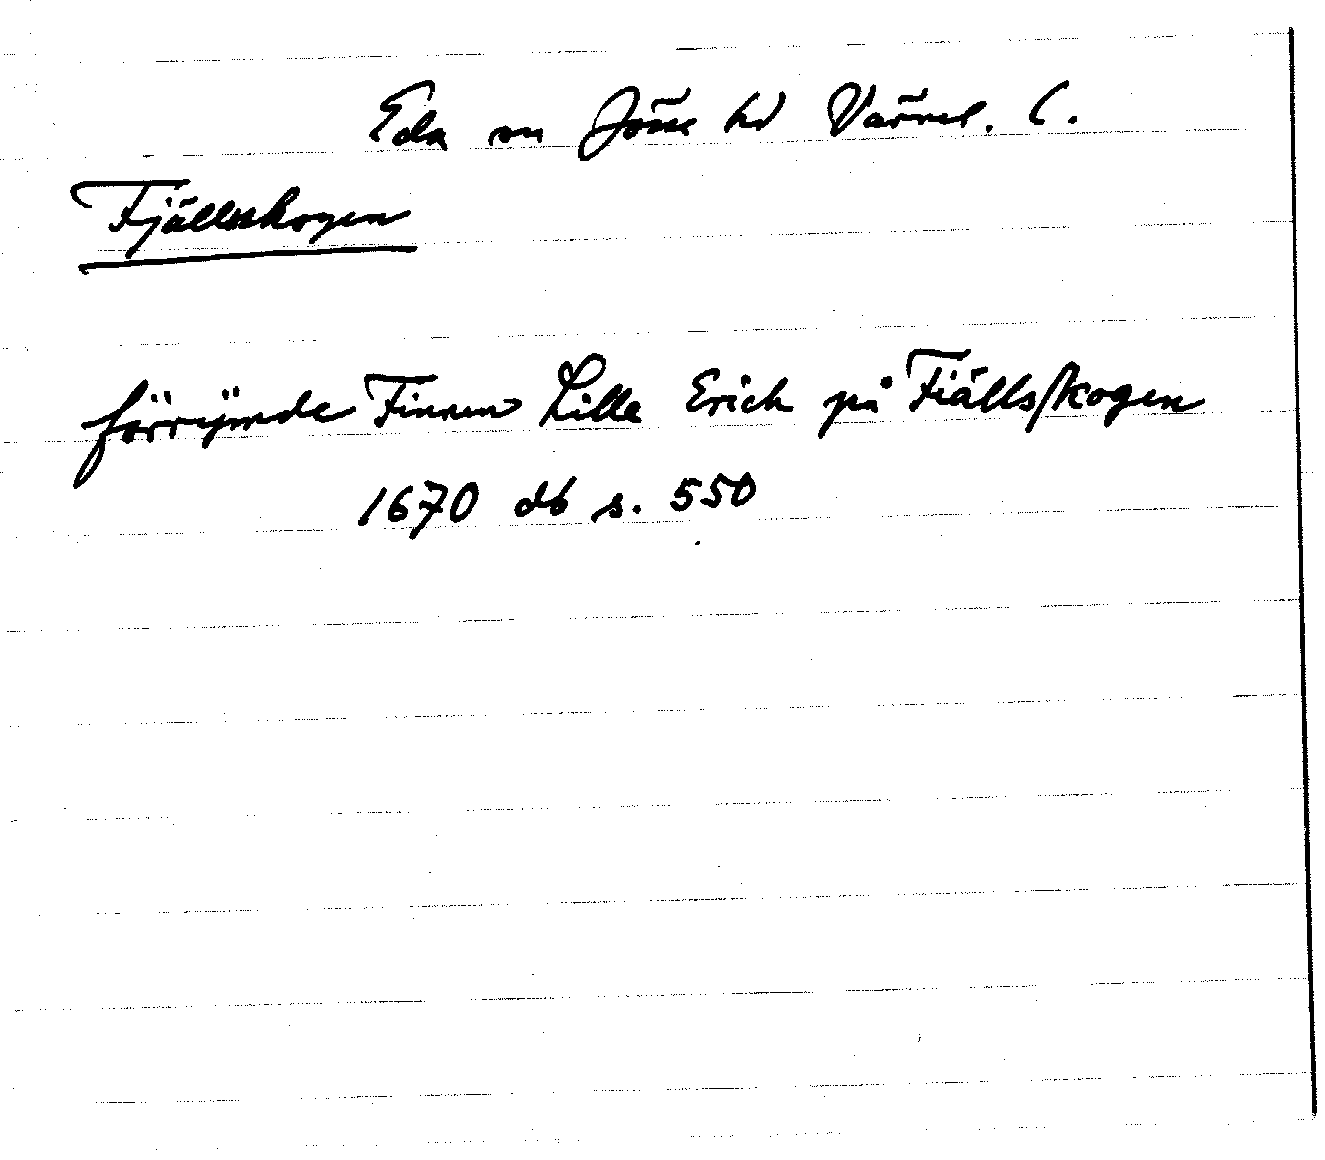 Eda sn Jösse hd Värml. l.
Fjällskogen
förrijmde Finnen Lille Erich på Fiällsskogen
1670 db s. 550